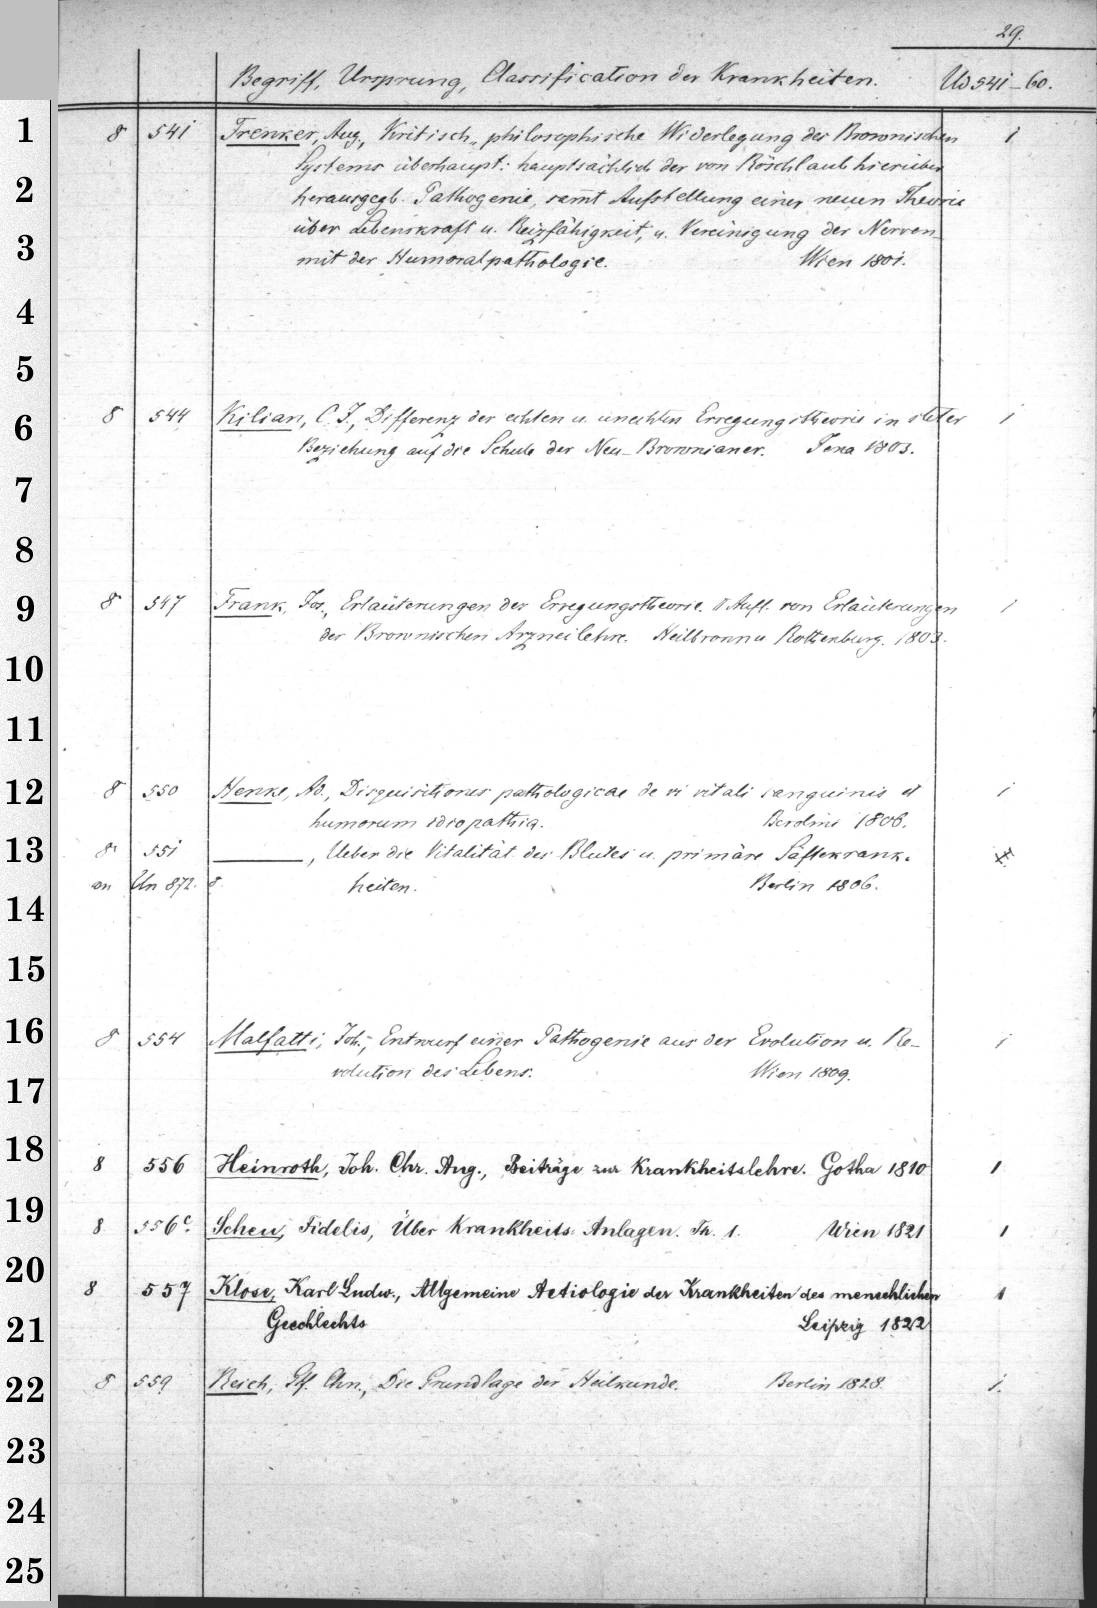 29.
Begriff, Ursprung, Classification der Krankheiten. Ud 541-60.
1
8 541 Frenker, Aug., Kritisch-philosophische Widerlegung des Brownischen 1
Systems überhaupt: hauptsächlich der von Röschlaub hierüber
2
herausgegb. Pathogenie, samt Aufstellung einer neuen Theorie
3
über Lebenskraft u. Reizfähigkeit, u. Vereinigung der Nerven-
mit der Humoralpathologie. Wien 1801.
4
5
6
8 544 Kilian, C. J., Differenz der echten u. unechten Erregungstheorie in steter 1
Beziehung auf die Schule der Neu-Brownianer. Jena 1803.
7
8
9
8 547 Frank, Jos., Erläuterungen der Erregungstheorie. II Aufl. von Erläuterungen 1
der Brownischen Arzneilehre. Heilbronn u Rothenburg. 1803.
10
11
12
8 550 Henke, Ad., Disquisitiones pathologicae de vi vitali sanguinis et 1
humorum idiopathia. Berolini 1806.
13
8 551 ———, Ueber die Vitalität des Blutes u. primäre Säftekrank-
an Un 872. 8. heiten. Berlin 1806.
14
15
16
8 554 Malfatti, Joh., Entwurf einer Pathogenie aus der Evolution u. Re- 1
volution des Lebens. Wien 1809.
17
18
8 556 Heinroth, Joh. Chr. Aug., Beiträge zur Krankheitslehre. Gotha 1810 1
19
8 556c. Scheu, Fidelis, Über Krankheits-Anlagen. Th. 1. Wien 1821 1
20
8 557 Klose, Karl Ludw., Allgemeine Aetiologie der Krankheiten des menschlichen 1
21
Geschlechts Leipzig 1822
22
8 559 Reich, Gf. Chn., Die Grundlage der Heilkunde. Berlin 1828. 1.
23
24
25